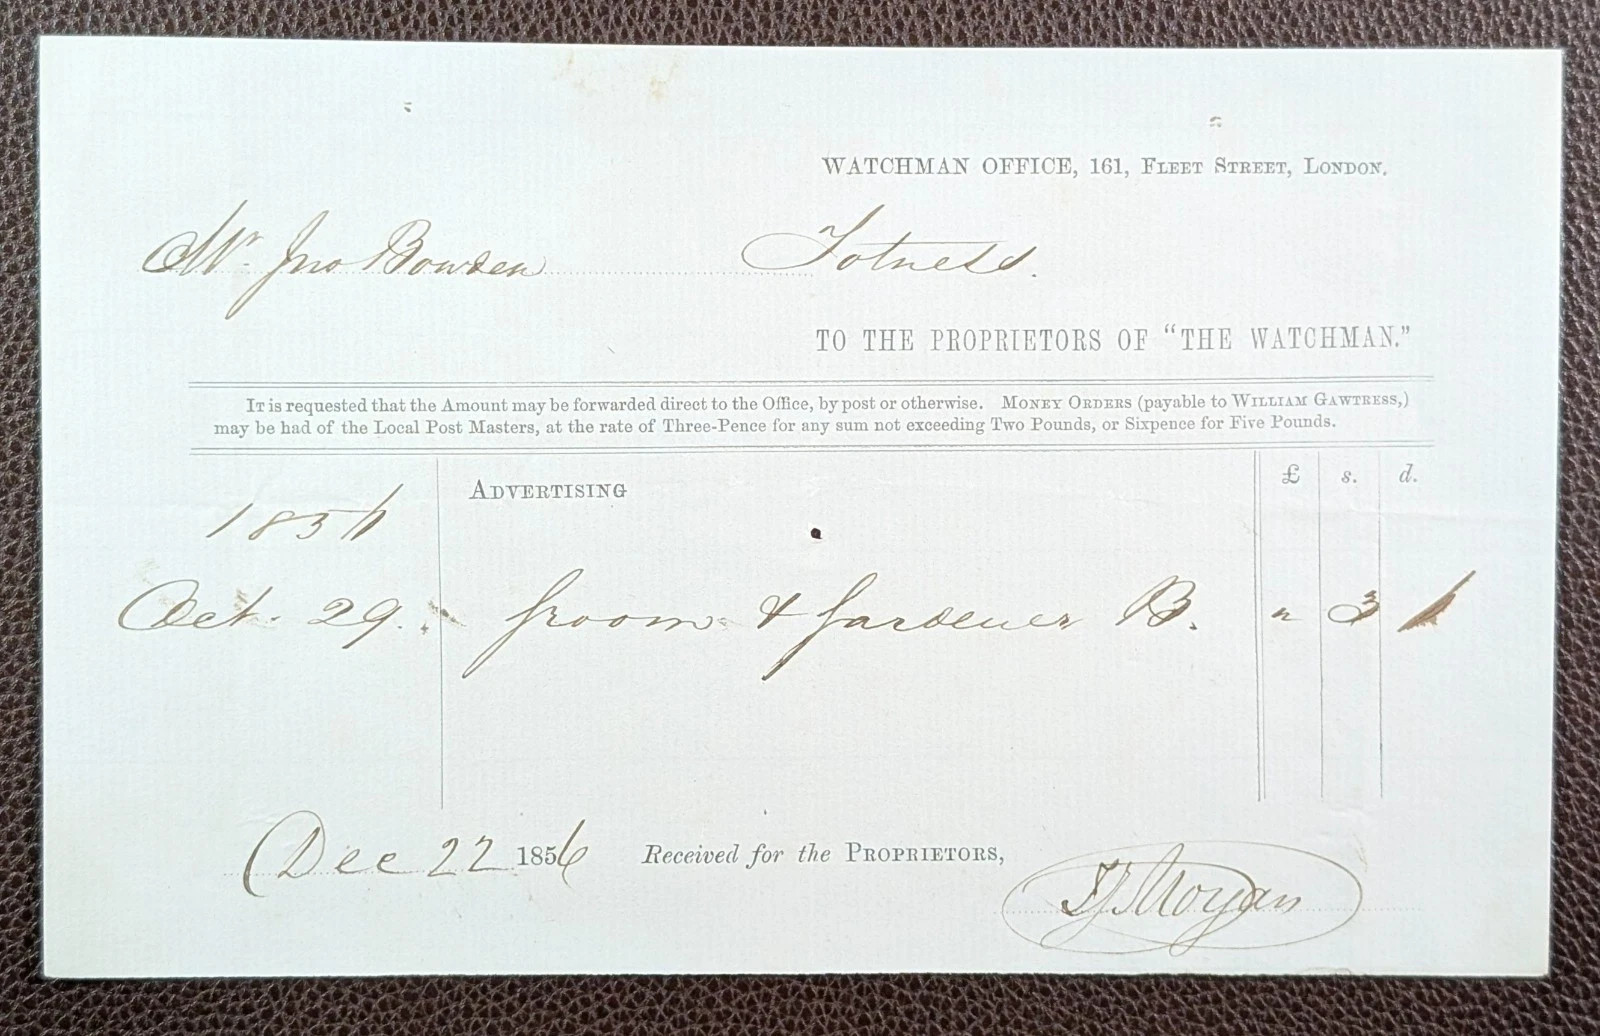 WATCHMAN OFFICE, 161, FLEET STREET, LONDON.
Mr. Jno Bowden Totness.
TO THE PROPRIETORS OF "THE WATCHMAN."
IT is requested that the Amount may be forwarded direct to the Office, by post or otherwise. MONEY ORDERS (payable to WILLIAM GAWTRESS,)
may be had of the Local Post Masters, at the rate of Three-Pence for any sum not exceeding Two Pounds, or Sixpence for Five Pounds.
ADVERTISING £ s. d.
1856
Oct. 29. Groom & Gardener B. " 3 6
Dec 22 1856 Received for the PROPRIETORS,
Morgan